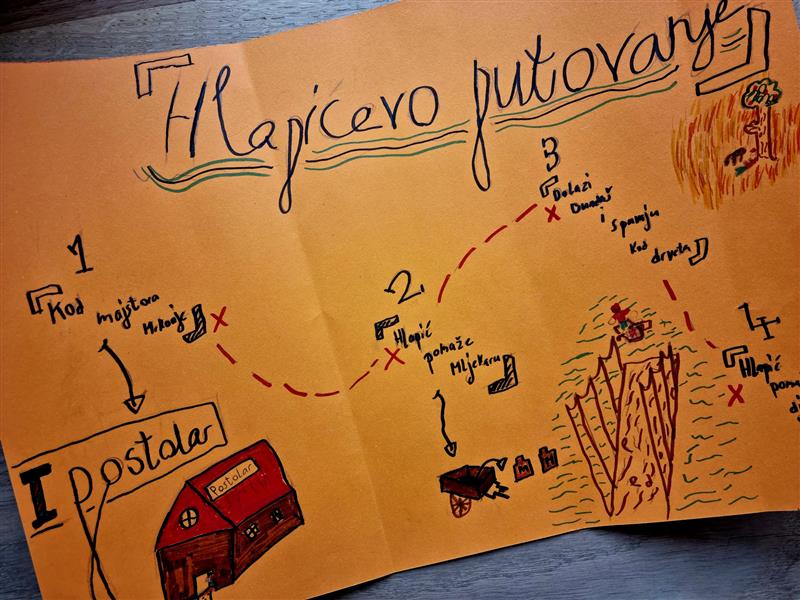 Hlapićevo putovanje
1
Kod majstora Mrkonje
Postolar
Postolar
2
Hlapić
pomaže
Mljekaru
M
M
3
Dolazi
Bundaš
i
spavaju
kod
drveta
4
Hlapić